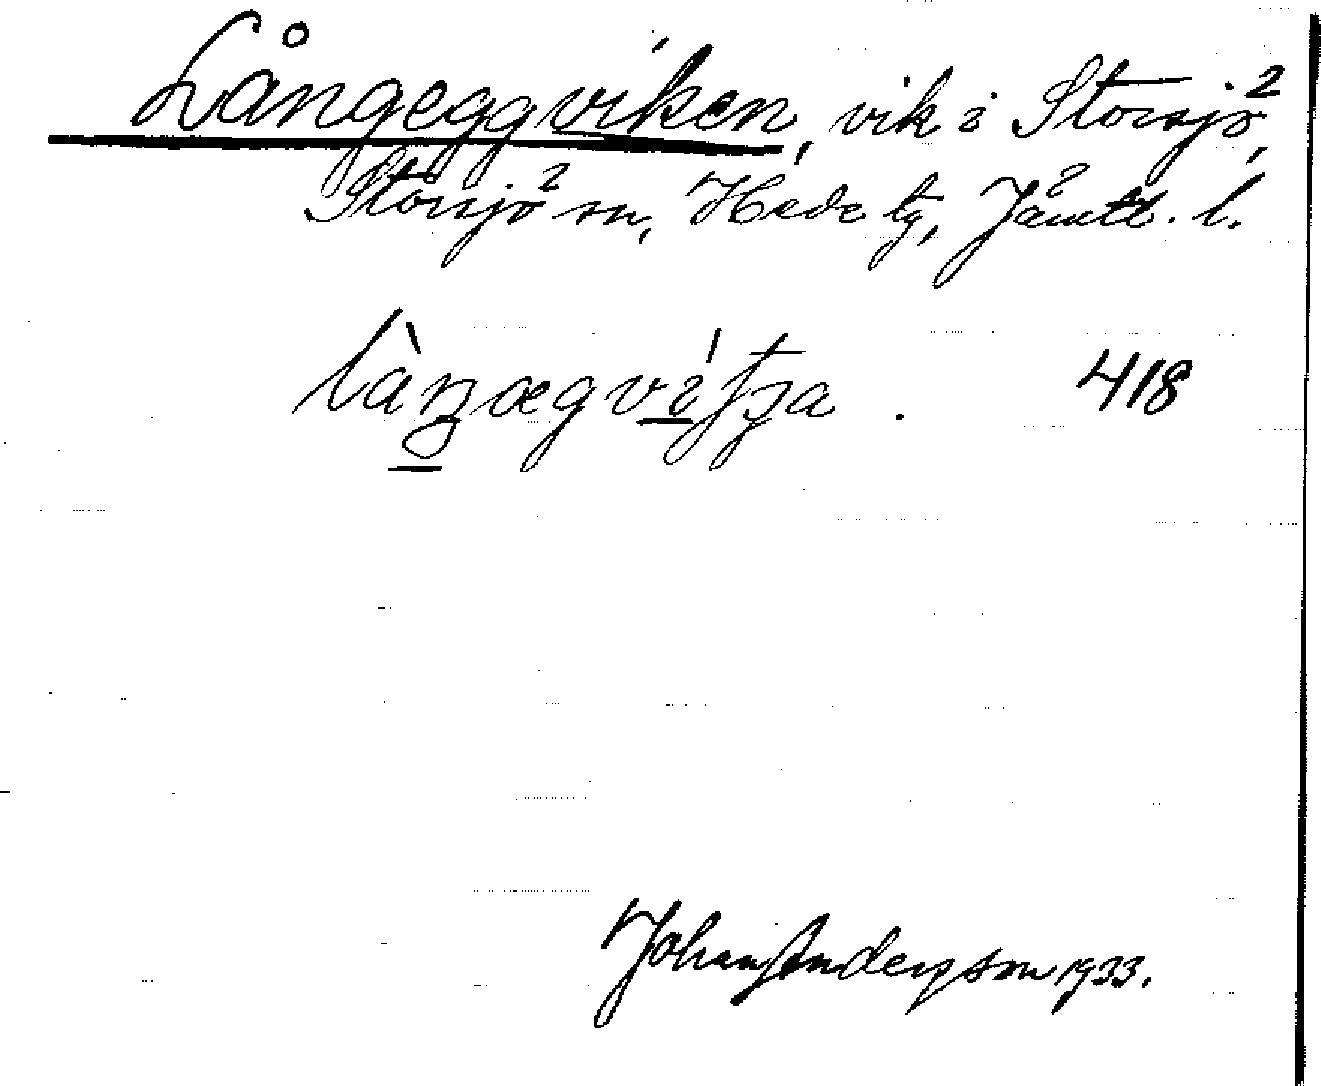 Långeggviken, vik i Storsjö,
Storsjö sn, Hede tg, Jämtl. l.
418
Johan Anderson 1933.